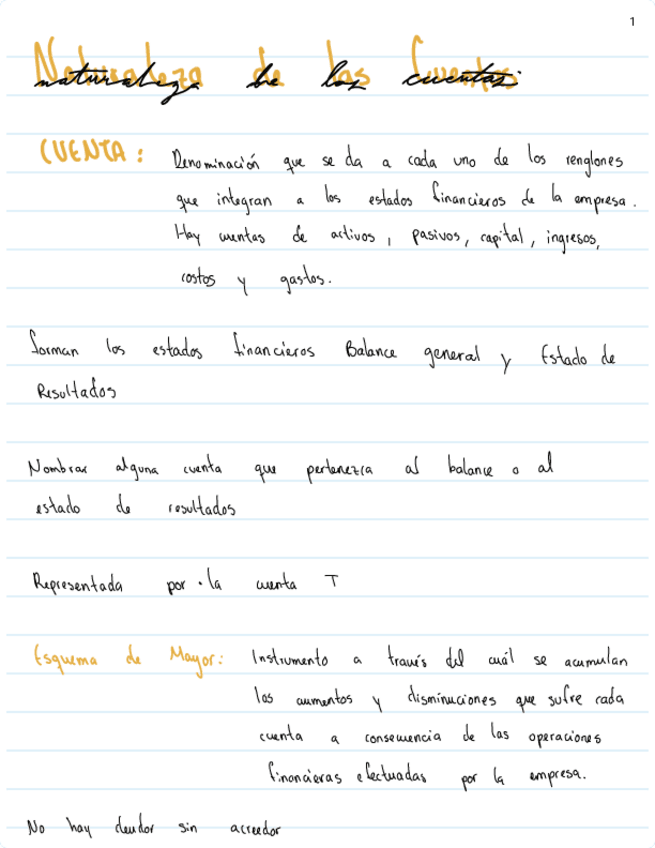 1
Naturaleza de las Cuentas
CUENTA: Denominación que se da a cada uno de los renglones
que integran a los estados financieros de la empresa.
Hay cuentas de activos, pasivos, capital, ingresos,
costos y gastos.
forman los estados financieros Balance general y Estado de
Resultados
Nombrar alguna cuenta que pertenezca al balance o al
estado de resultados
Representada por la cuenta T
Esquema de Mayor: Instrumento a través del cuál se acumulan
los aumentos y disminuciones que sufre cada
cuenta a consecuencia de las operaciones
financieras efectuadas por la empresa.
No hay deudor sin acreedor